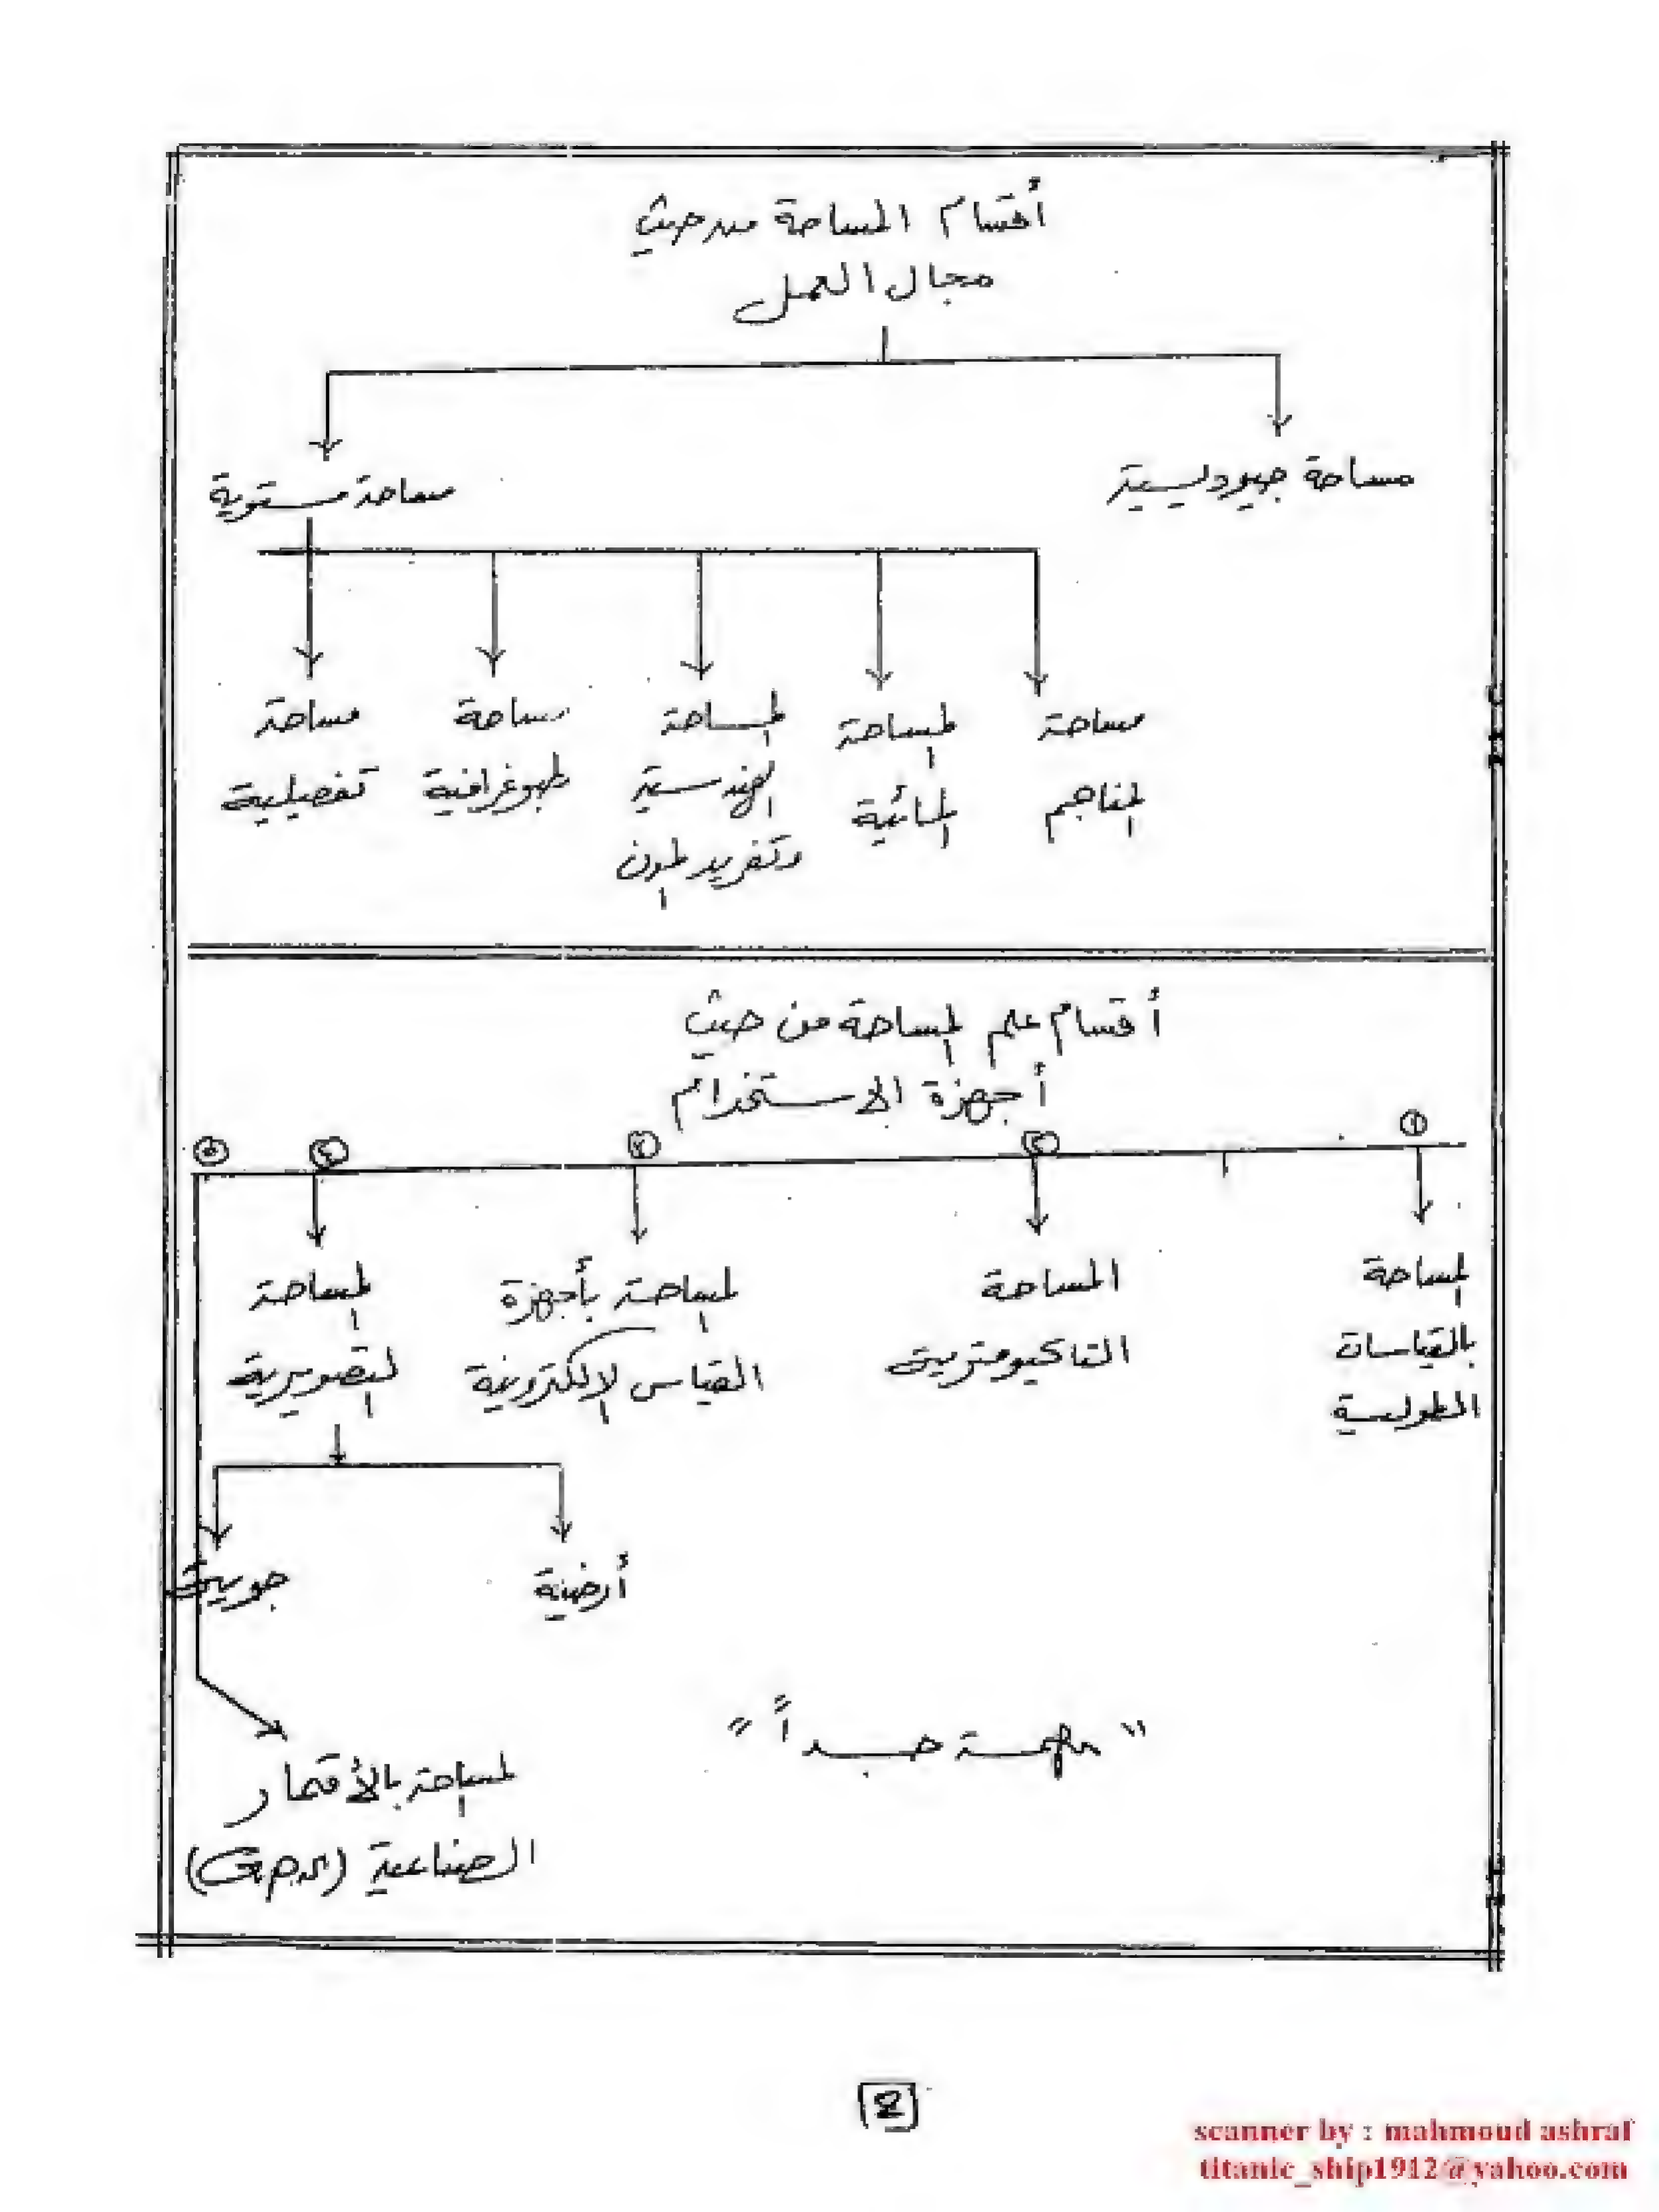 أقسام المساحة من حيث
مجال العمل
مساحة جيوديسية
مساحة مستوية
مساحة
المناجم
المساحة
المائية
المساحة
الهندسية
وتخطيط المدن
مساحة
طبوغرافية
مساحة
تفصيلية
أقسام علم المساحة من حيث
أجهزة الاستخدام
١
٢
٣
٤
٥
المساحة
بالقياسات
الطولية
المساحة
التاكيومترية
المساحة بأجهزة
القياس الإلكترونية
المساحة
التصويرية
أرضية
جوية
المساحة بالأقمار
الصناعية (G.P.S)
"مهمة جداً"
2
scanner by : mahmoud ashraf
titanic_ship1912@yahoo.com